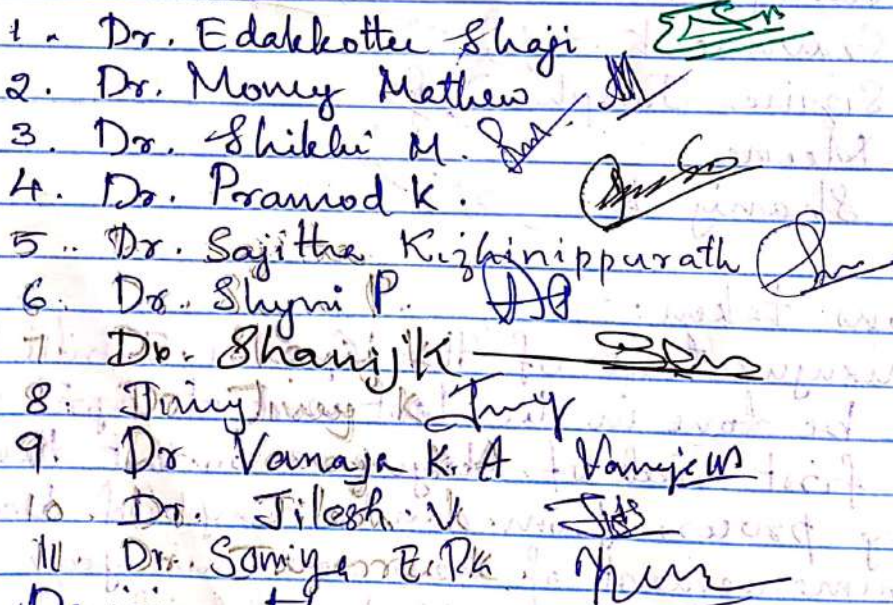 1. Dr. Edakkottu Shaji
2. Dr. Money Mathew
3. Dr. Shikhi M.
4. Dr. Pramod K.
5. Dr. Sajitha Kizhinippurath
6. Dr. Shyni P.
7. Dr. Shanij K
8.
9. Dr Vanaja K. A
10. Dr. Jilesh. V
11. Dr. Somiya E. Pk